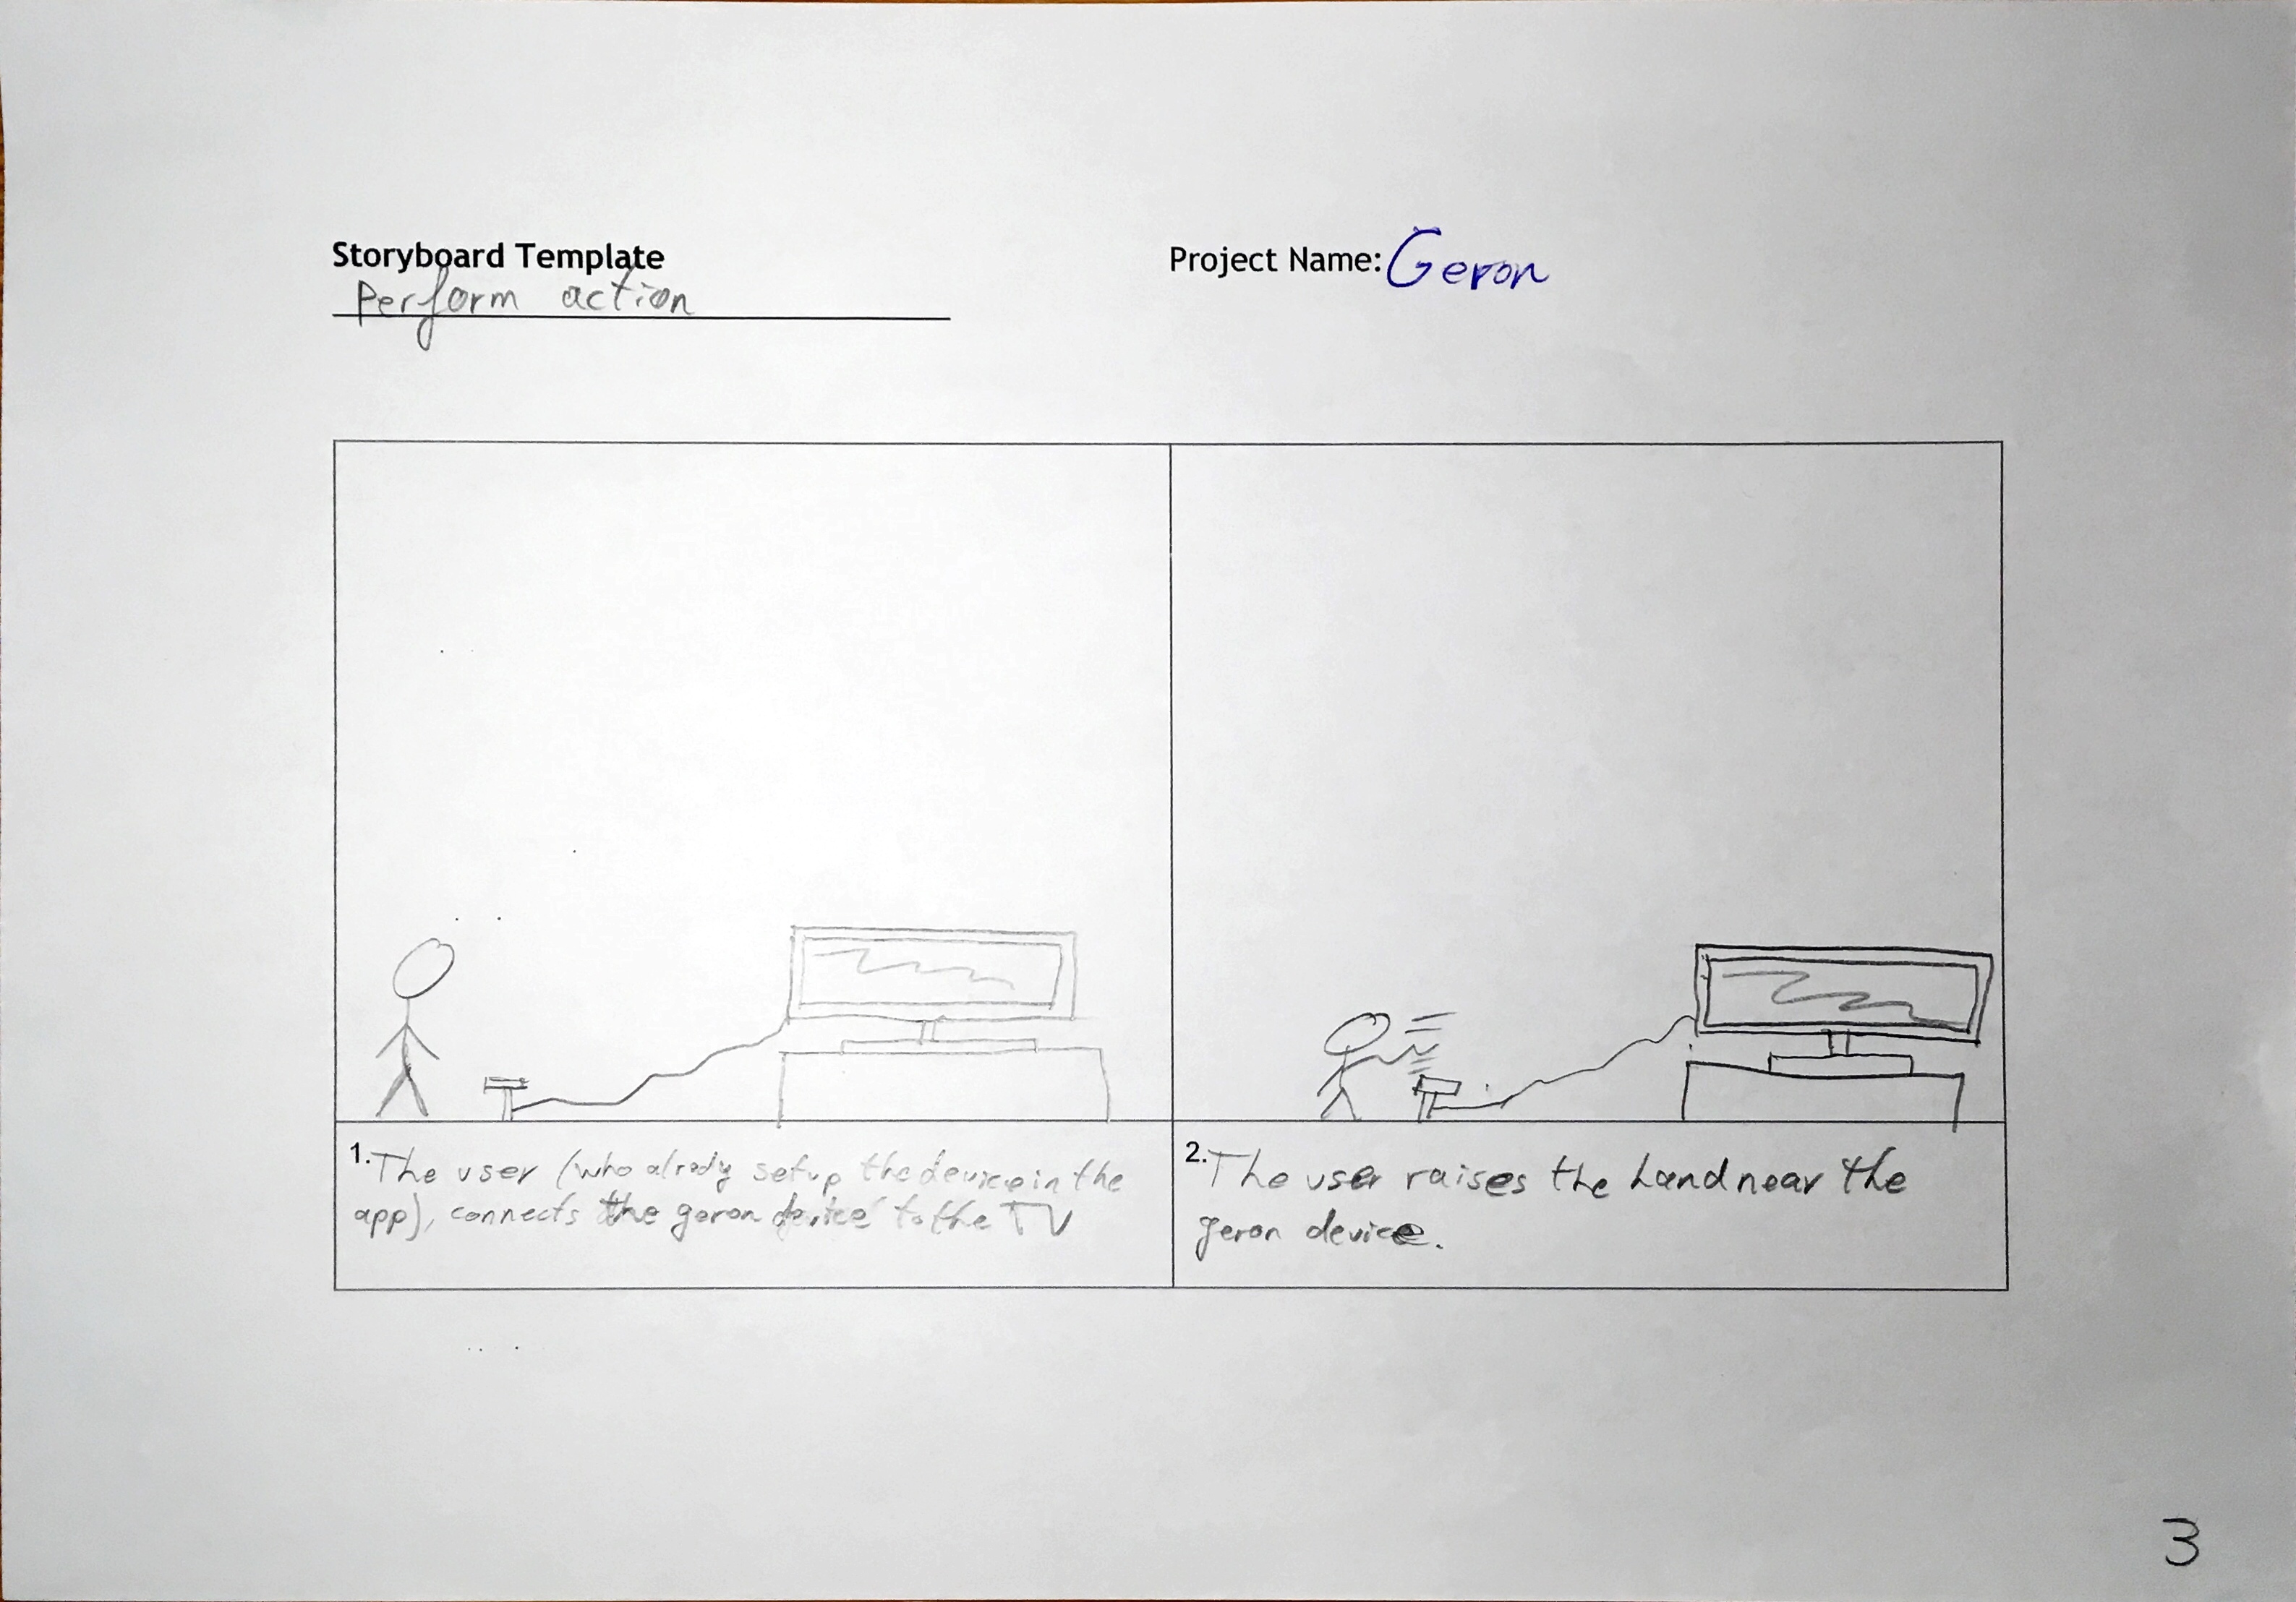 Storyboard Template
Perform action
Project Name: Geron
1. The user (who alrady setup the device in the
app), connects the geron device to the TV
2. The user raises the hand near the
geron device.
3